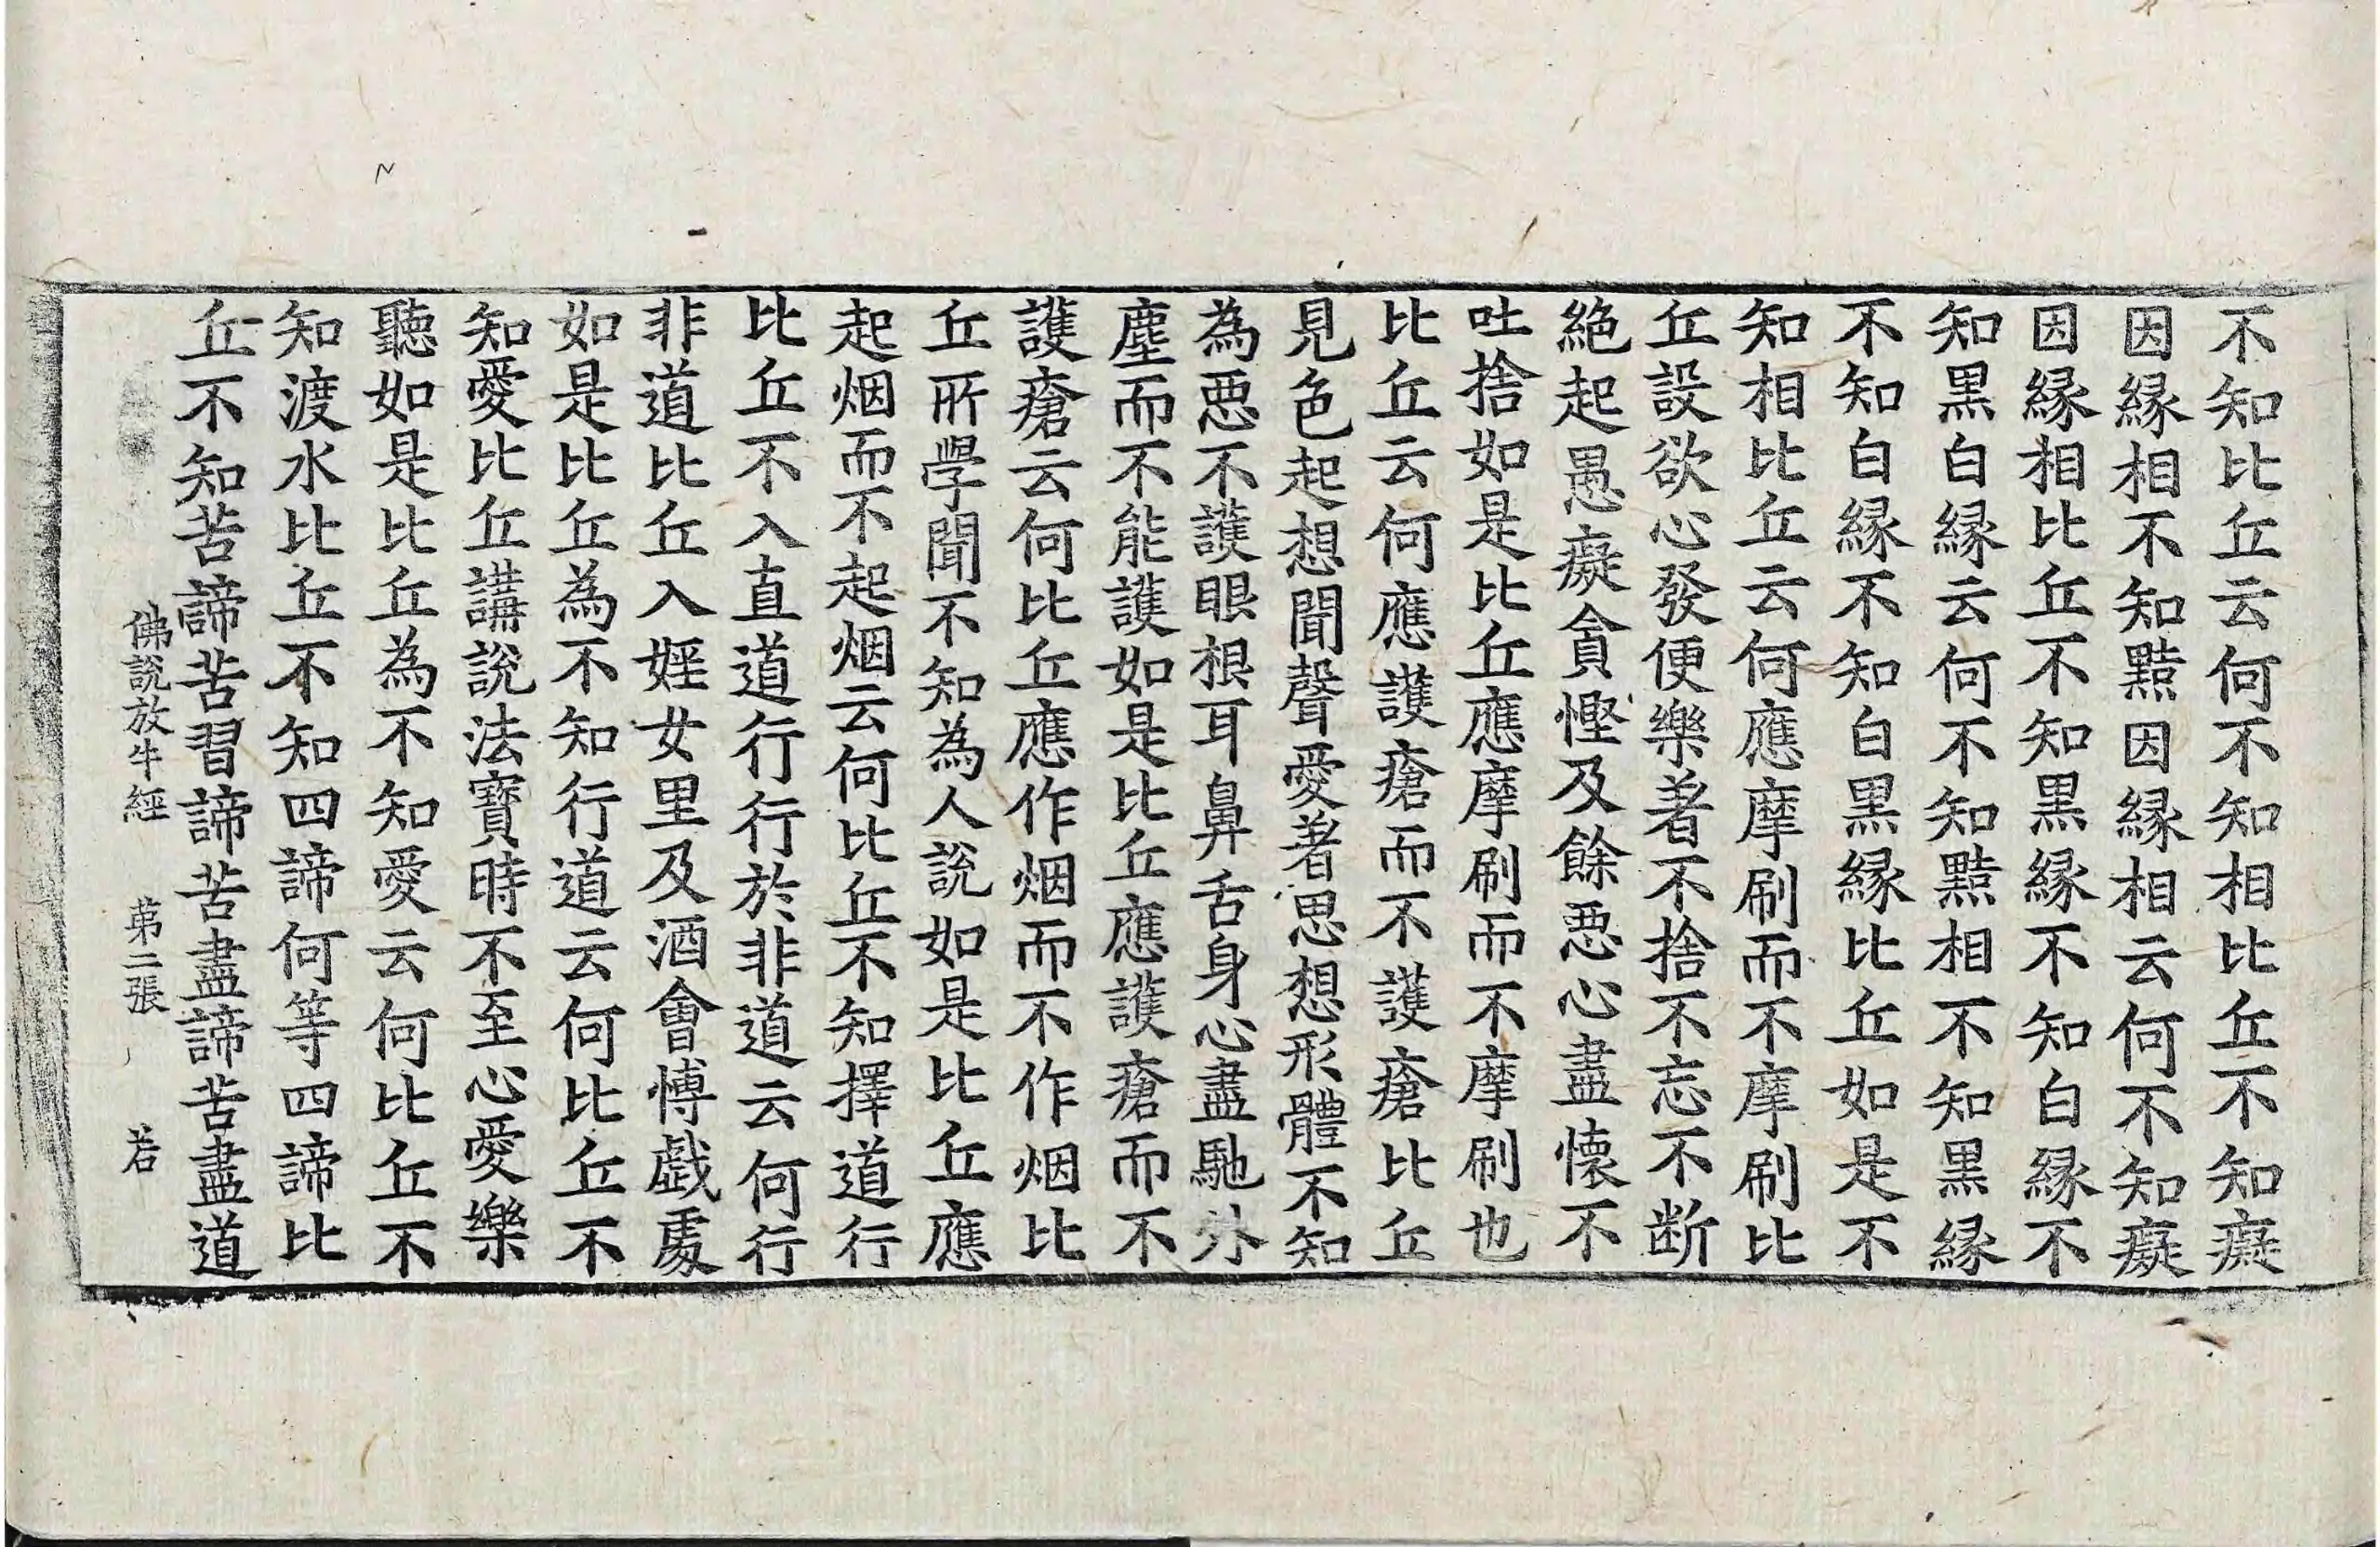 不知比丘云何不知相比丘不知癡
因縁相不知黠因縁相云何不知癡
因縁相比丘不知黒縁不知白縁不
知黒白縁云何不知黠相不知黒縁
不知白縁不知白黒縁比丘如是不
知相比丘云何應摩刷而不摩刷比
丘設欲心發便樂著不捨不忘不断
絶起愚癡貪慳及餘悪心盡懷不
吐捨如是比丘應摩刷而不摩刷也
比丘云何應護瘡而不護瘡比丘
見色起想聞聲愛著思想形體不知
為悪不護眼根耳鼻舌身心盡馳外
塵而不能護如是比丘應護瘡而不
護瘡云何比丘應作烟而不作烟比
丘所學聞不知為人說如是比丘應
起烟而不起烟云何比丘不知擇道行
比丘不入直道行行於非道云何行
非道比丘入婬女里及酒會博戯處
如是比丘為不知行道云何比丘不
知愛比丘講說法寶時不至心愛樂
聽如是比丘為不知愛云何比丘不
知渡水比丘不知四諦何等四諦比
丘不知苦諦苦習諦苦盡諦苦盡道
佛說放牛經 苐二張 若